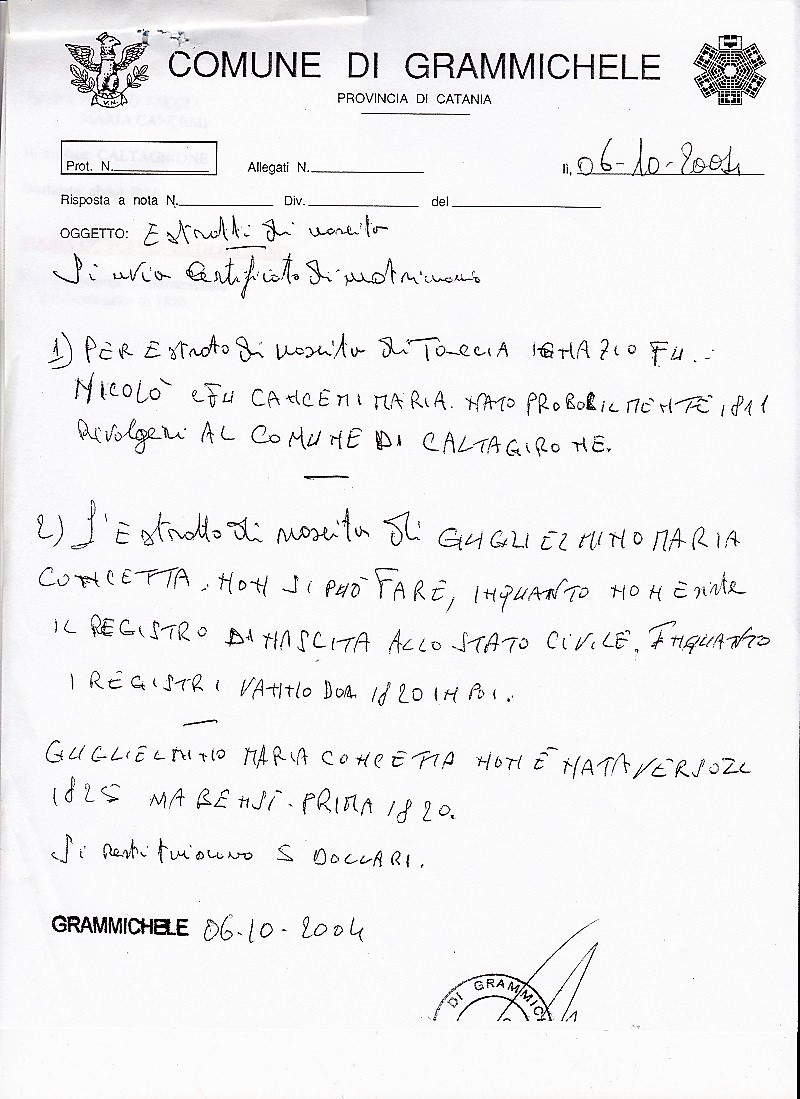 COMUNE DI GRAMMICHELE
PROVINCIA DI CATANIA
Prot. N. Allegati N. lì, 06-10-2004
Risposta a nota N. Div. del
OGGETTO: Estratti di nascita
Si invia Certificato di matrimonio
1) PER Estratto di nascita di IGNAZIO FU
NICOLÒ e FU CANCEMI MARIA. NATO PROBABILMENTE 1811
Rivolgersi AL COMUNE DI CALTAGIRONE.
2) L'Estratto di nascita di GUGLIELMINO MARIA
CONCETTA. NON SI PUÒ FARE, INQUANTO NON Esiste
IL REGISTRO DI NASCITA ALLO STATO CIVILE. INQUANTO
I REGISTRI VANNO DAL 1820 IN POI.
GUGLIELMINO MARIA CONCETTA NON È NATA VERSO IL
1825 MA BENSÌ - PRIMA 1820.
Si restituiscono 5 DOLLARI.
GRAMMICHELE 06-10-2004
DI GRAMMICH